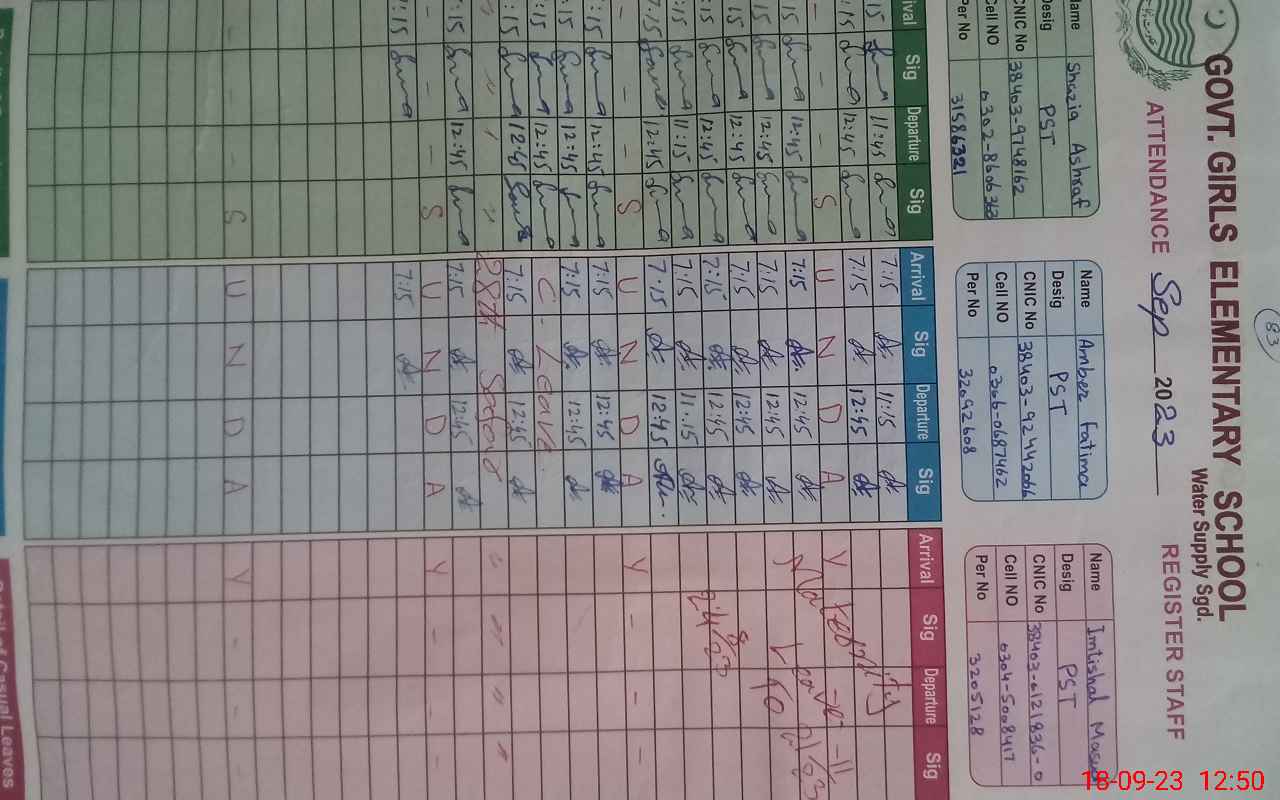 83
GOVT. GIRLS ELEMENTARY SCHOOL
Water Supply Sgd.
ATTENDANCE Sep 2023 REGISTER STAFF
Name Shazia Ashraf
Desig PST
CNIC No 38403-9748162
Cell NO
Per No 31586321
Name Amber Fatima
Desig PST
CNIC No
Cell NO 0306-0687462
Per No 32092608
Name Imtishal
Desig PST
CNIC No 38403-6121836-0
Cell NO 0304-5008417
Per No
Sig Departure Sig
Arrival Sig Departure Sig
Arrival Sig Departure Sig
11:45 7:15 11:15
12:45 7:15 12:45
- - S U N D A Y - -
12:45 7:15 12:45
12:45 7:15 12:45
12:45 7:15 12:45
12:45 7:15 12:45
11:15 7:15 11:15
7:15 12:45 7:15 12:45
- - - S U N D A Y - - -
7:15 12:45 7:15 12:45
7:15 12:45 7:15 12:45
7:15 12:45 C-Leave
7:15 12:45 7:15 12:45
28th
7:15 12:45 7:15 12:45
- - - S U N D A Y - - -
7:15 7:15
- - - S U N D A Y - - -
Leave
Detail of Casual Leaves
18-09-23 12:50